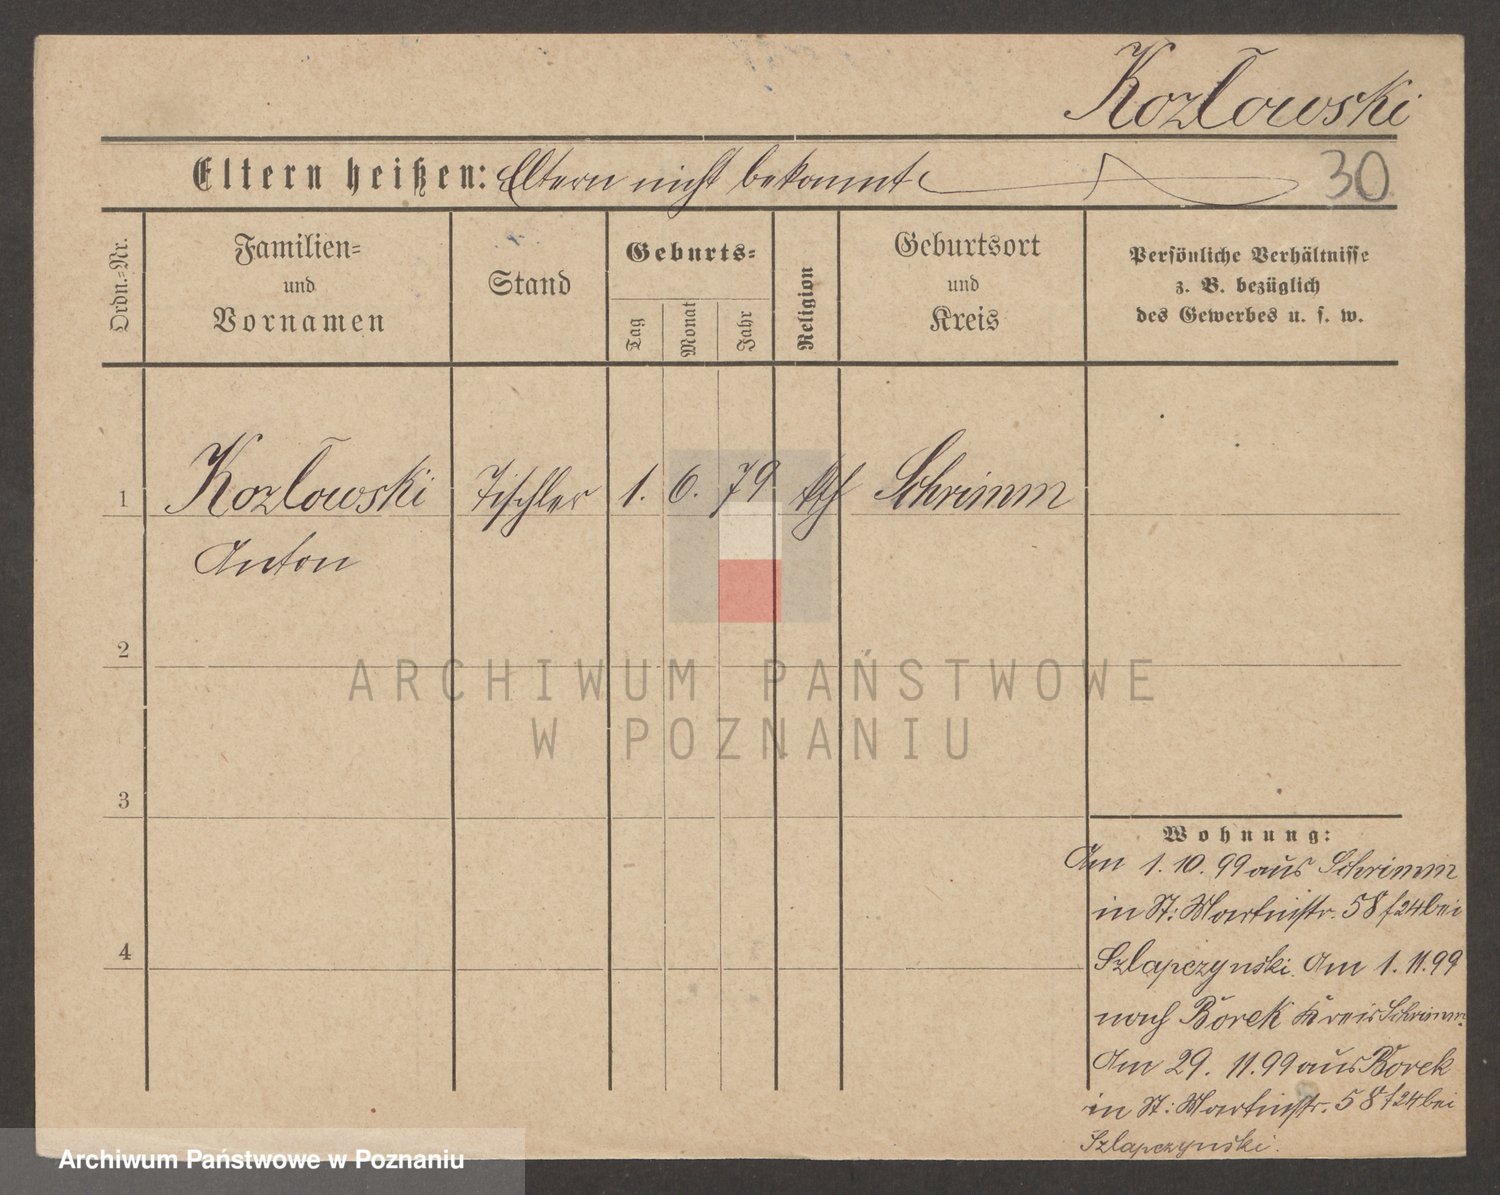 Kozłowski
Eltern heißen: Eltern nicht bekannt
30
Ordn.=Nr.
Familien=
und
Vornamen
Stand
Geburts=
Tag
Monat
Jahr
Religion
Geburtsort
und
Kreis
Persönliche Verhältnisse
z. B. bezüglich
des Gewerbes u. s. w.
1 Kozłowski Tischler 1. 6. 79 kth Schrimm
Anton
2
3
4
Wohnung:
Am 1. 10. 99 aus Schrimm
in St: Martinstr. 58/24 bei
Szlapczynski. Am 1. 11. 99
nach Borek Kreis Schrimm.
Am 29. 11. 99 aus Borek
in St: Martinstr. 58/24 bei
Szlapczynski.
ARCHIWUM PAŃSTWOWE
W POZNANIU
Archiwum Państwowe w Poznaniu